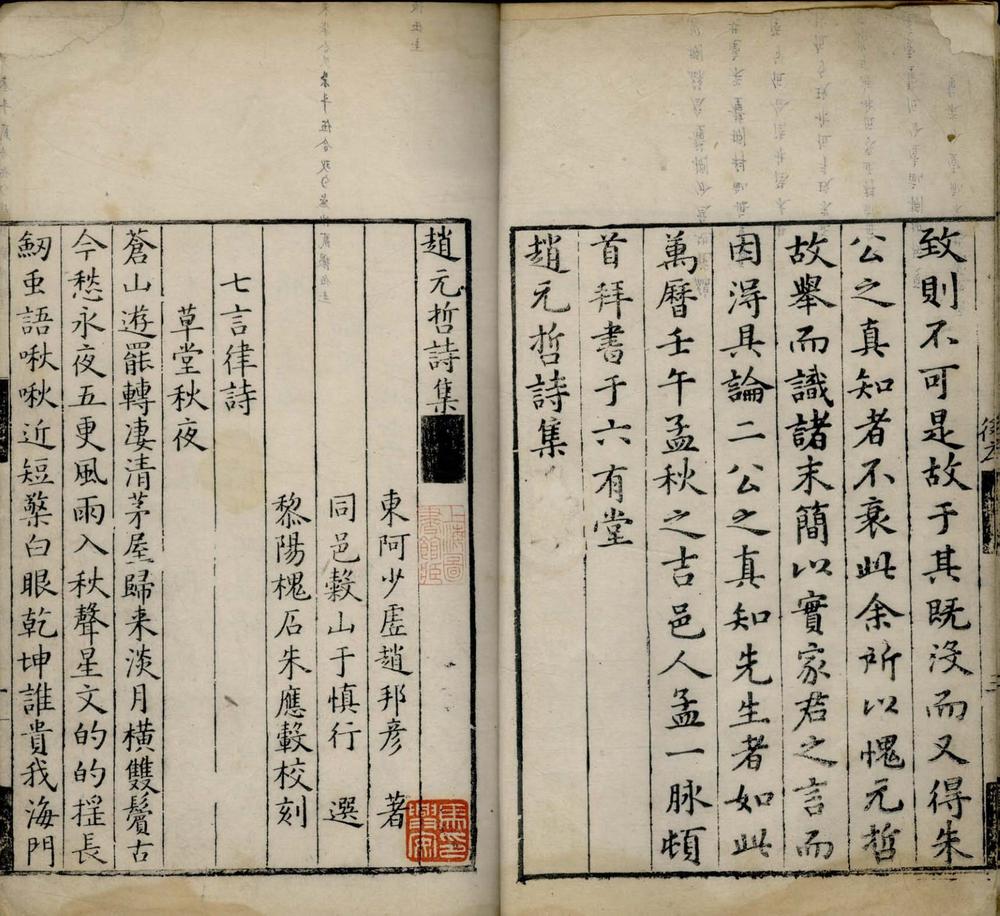 致則不可是故于其既沒而又得朱
公之真知者不衰此余所以愧元哲
故舉而識諸末簡以實家君之言而
因淂具論二公之真知先生者如此
萬曆壬午孟秋之吉邑人孟一脉頓
首拜書于六有堂
趙元哲詩集
趙元哲詩集
東阿少虛趙邦彥 著
同邑穀山于慎行 選
黎陽槐石朱應轂校刻
七言律詩
草堂秋夜
蒼山遊罷轉凄清茅屋歸来淡月橫雙鬢古
今愁永夜五更風雨入秋聲星文的的揺長
劔䖝語啾啾近短檠白眼乾坤誰貴我海門
上海圖書館藏